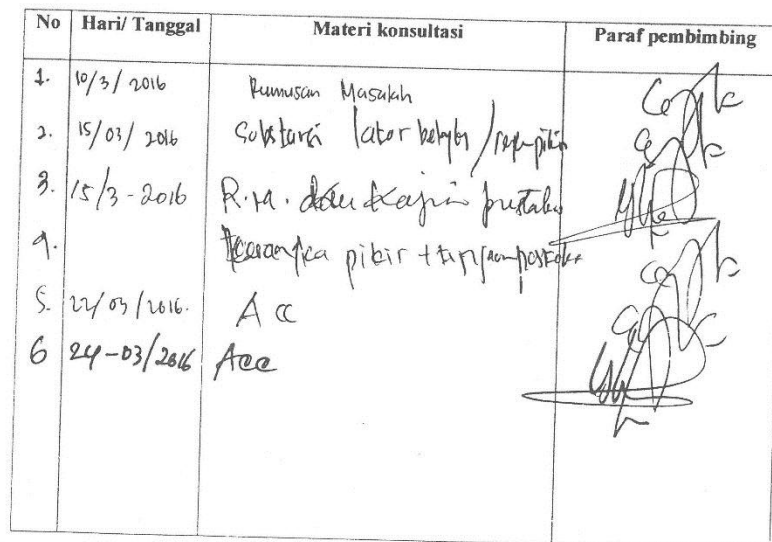 No Hari/ Tanggal Materi konsultasi Paraf pembimbing
1. 10/3/ 2016 Rumusan Masalah
2. 15/03/ 2016 Substansi latar
3. 15/3-2016 R.M. dan Kajian pustaka
4. Kerangka pikir +
5. 22/03/2016. Acc
6 24-03/2016 Acc